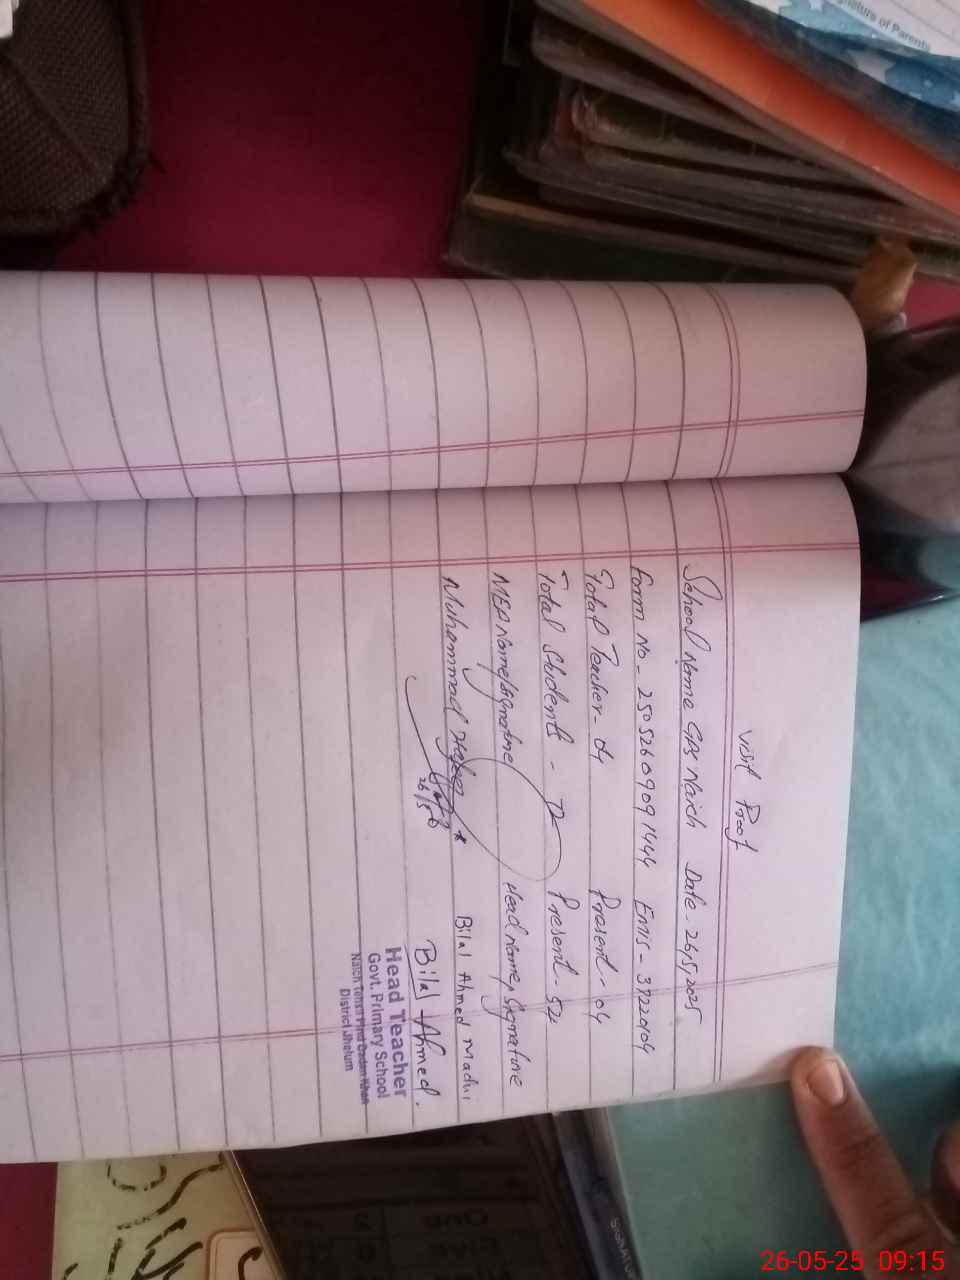 Signature of Parents
Visit Proof
School Name GPS Naich Date - 26,5,2025
Form No - 25052609091444 Emis - 37220104
Total Teacher - 04 Present - 04
Total Students - 72 Present - 52
Name/Signature Head name, Signature
Muhammad Bilal Ahmed
26/5
Bilal Ahmed.
Head Teacher
Govt. Primary School
Naich Tehsil Pind Dadan Khan
District Jhelum
26-05-25 09:15